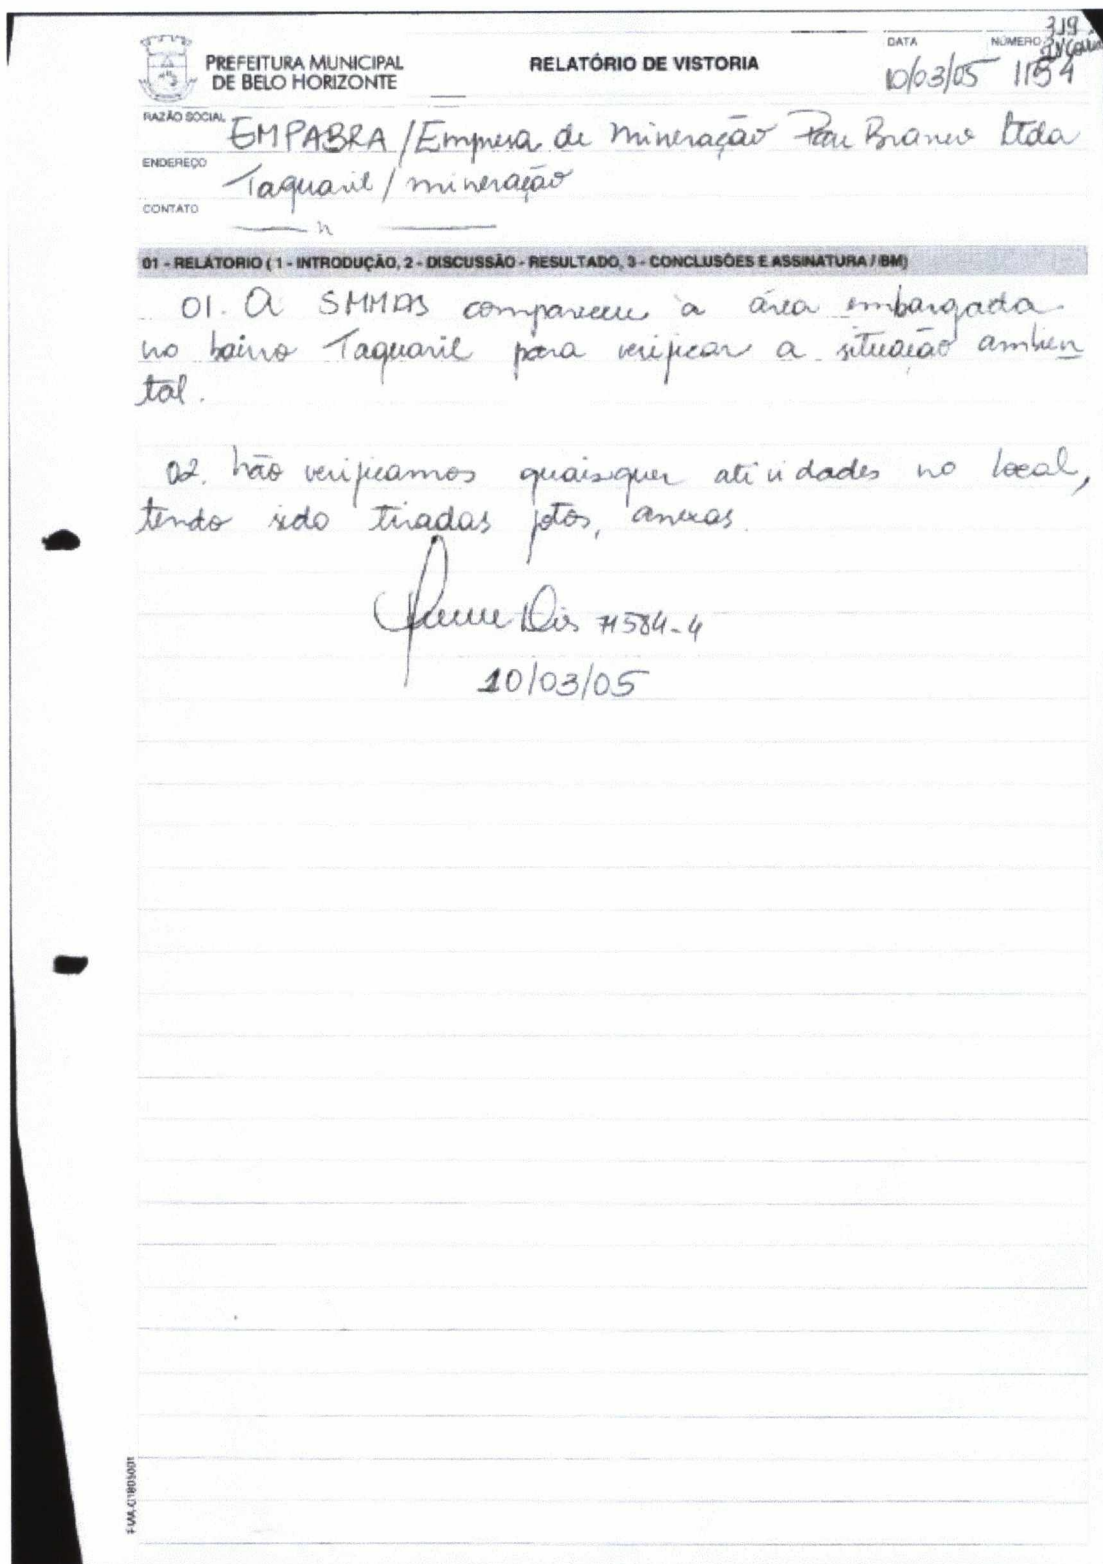 319
PREFEITURA MUNICIPAL
DE BELO HORIZONTE
RELATÓRIO DE VISTORIA
DATA
10/03/05
NÚMERO
1154
RAZÃO SOCIAL
EMPABRA / Empresa de Mineração Pau Branco Ltda
ENDEREÇO
Taquaril / mineração
CONTATO
01 - RELATÓRIO ( 1 - INTRODUÇÃO, 2 - DISCUSSÃO - RESULTADO, 3 - CONCLUSÕES E ASSINATURA / BM)
01. A SMMAS compareceu à área embargada
no bairro Taquaril para verificar a situação ambien
tal.
02. não verificamos quaisquer atividades no local,
tendo sido tiradas fotos, anexas.
584-4
10/03/05